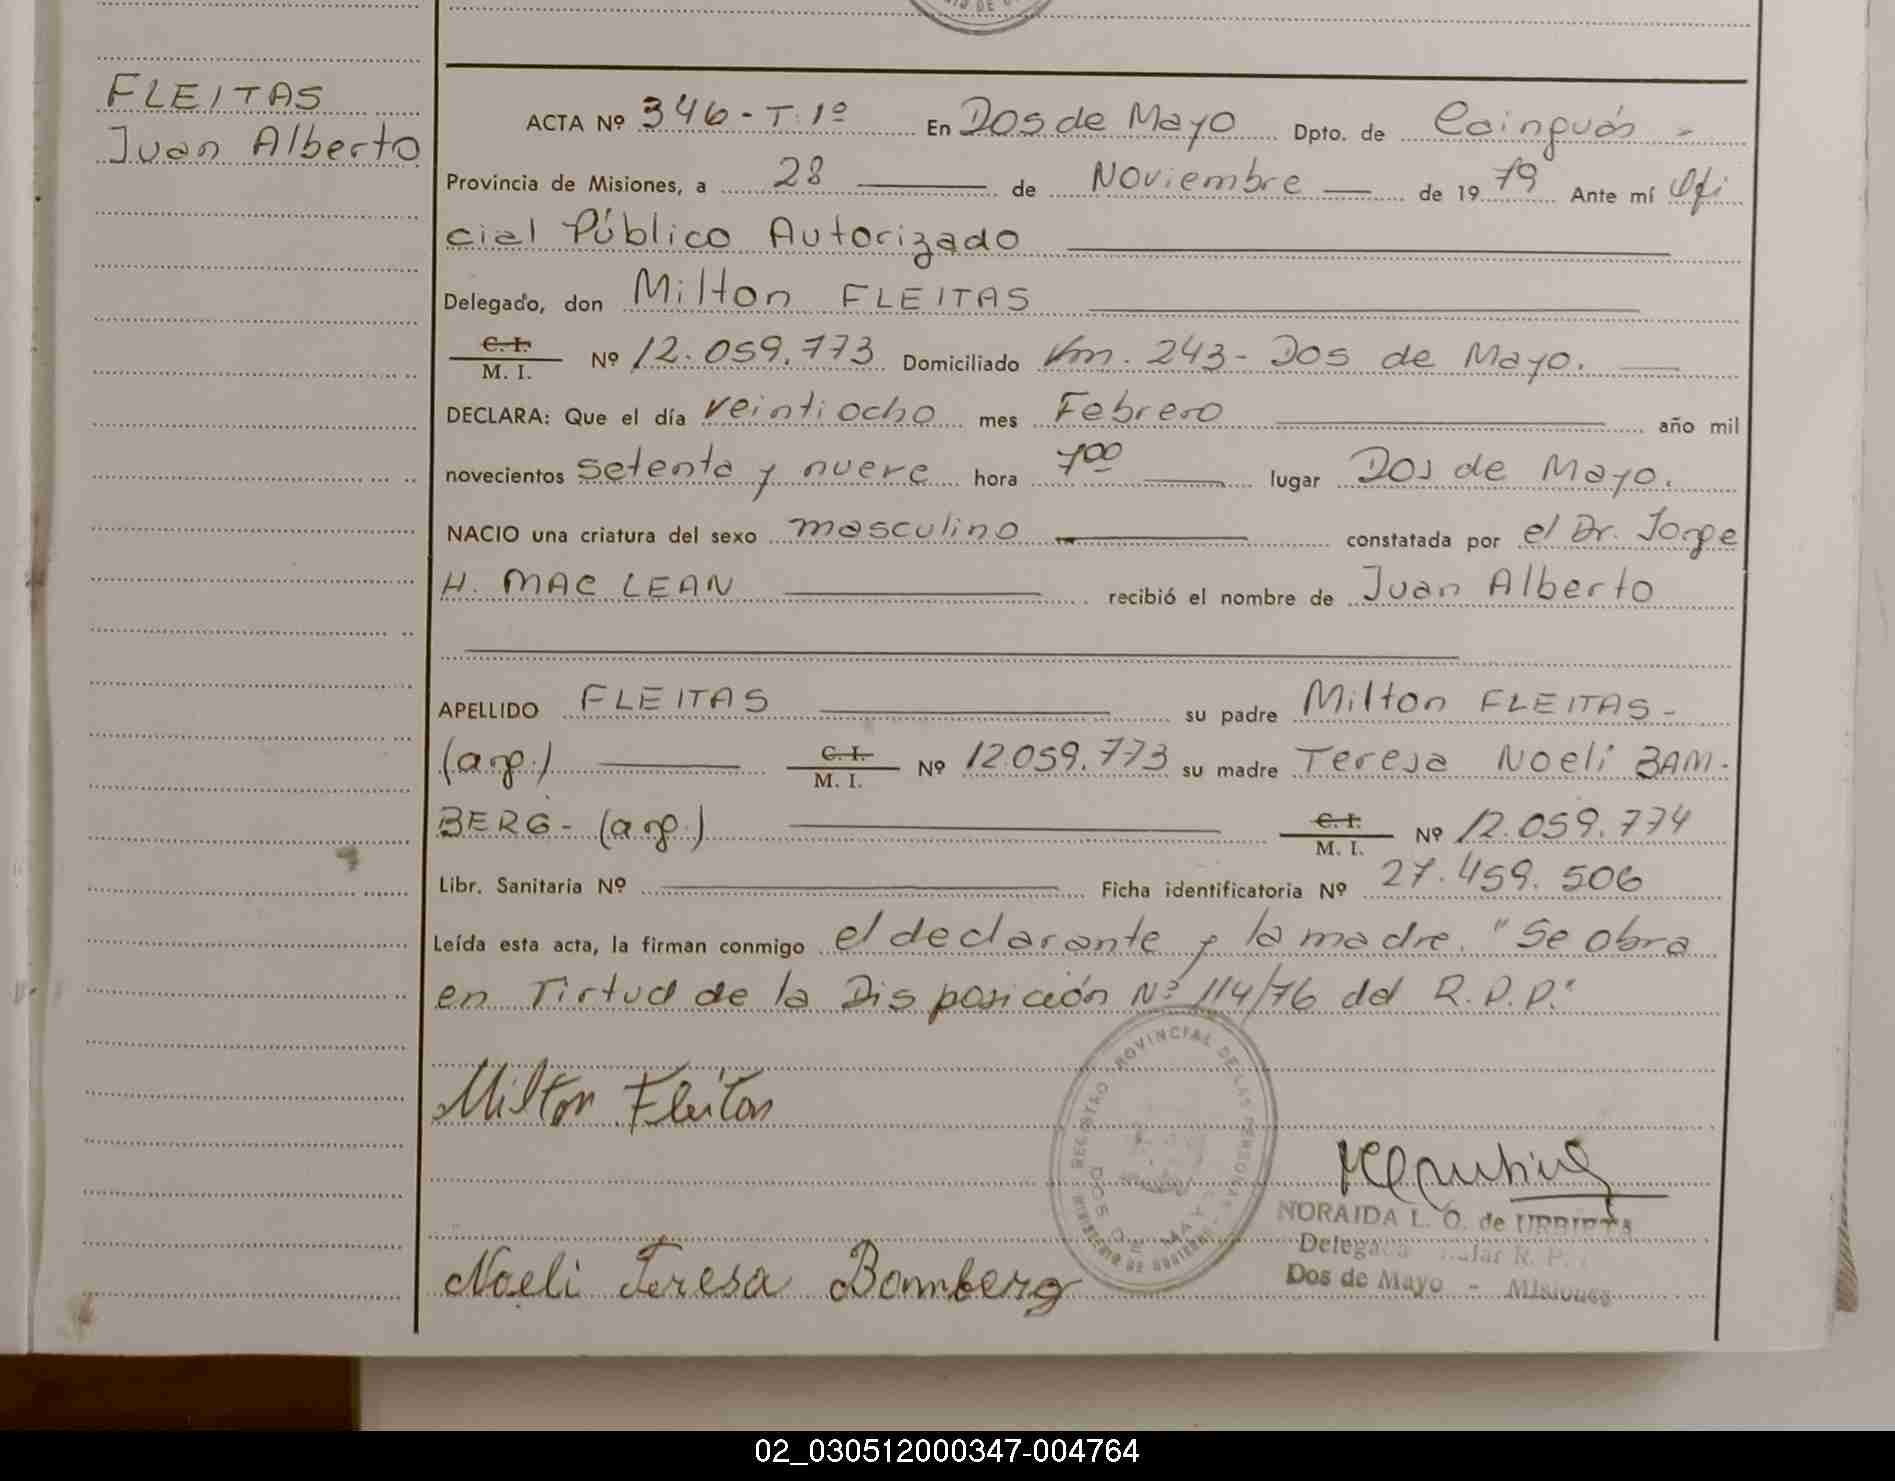 FLEITAS
Juan Alberto
ACTA Nº 346 - T. 1º En Dos de Mayo Dpto. de Cainguás -
Provincia de Misiones, a 28 de Noviembre de 1979 Ante mí Ofi
cial Público Autorizado
Delegado, don Milton FLEITAS
C. I.
M. I. Nº 12.059.773 Domiciliado Km. 243 - Dos de Mayo.
DECLARA: Que el día veintiocho mes Febrero año mil
novecientos setenta y nueve hora 7⁰⁰ lugar Dos de Mayo.
NACIO una criatura del sexo masculino constatada por el Dr. Jorge
H. MAC LEAN recibió el nombre de Juan Alberto
APELLIDO FLEITAS su padre Milton FLEITAS -
(arg.) C. I.
M. I. Nº 12.059.773 su madre Teresa Noeli BAM-
BERG - (arg.) C. I.
M. I. Nº 12.059.774
Libr. Sanitaria Nº Ficha identificatoria Nº 27.459.506
Leída esta acta, la firman conmigo el declarante y la madre. "Se obra
en Tirtud de la Disposición Nº 114/76 del R.P.P."
Milton Fleitas
REGISTRO PROVINCIAL DE LAS PERSONAS
DOS DE MAYO
MINISTERIO DE GOBIERNO
NORAIDA L. O. de URBIETA
R. P.
Dos de Mayo - Misiones
Noeli Teresa Bamberg
02_030512000347-004764